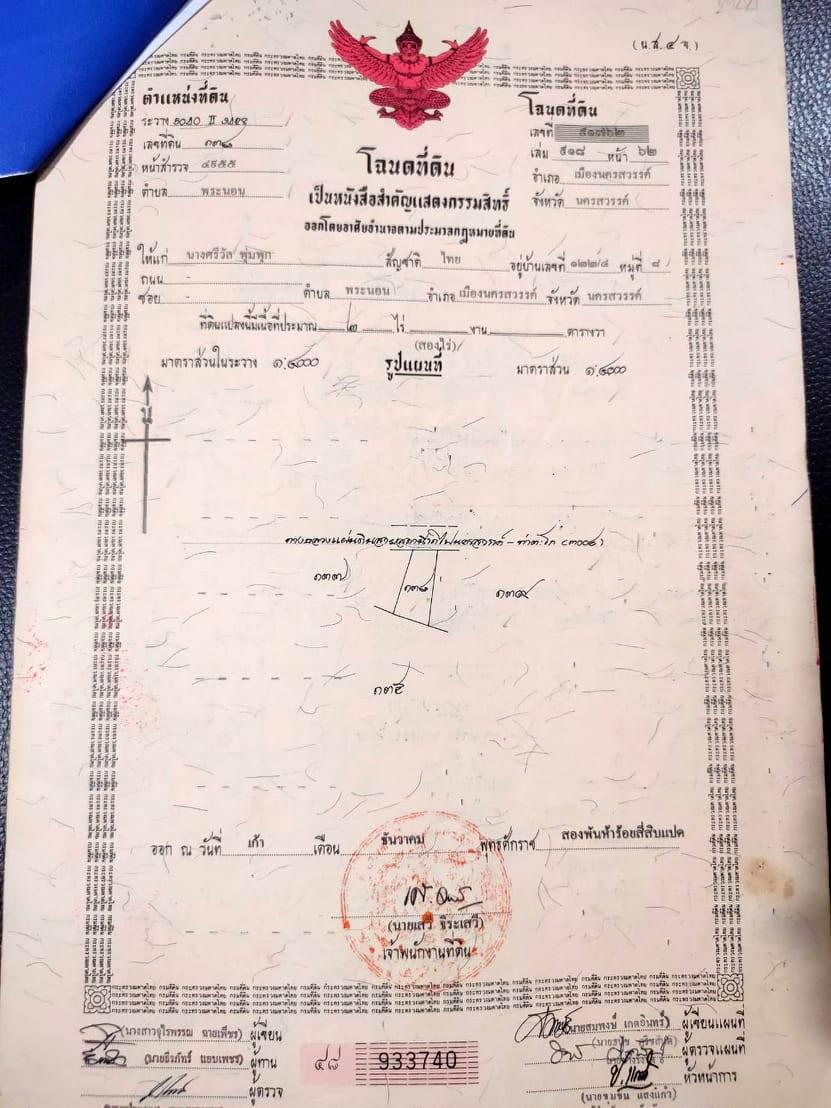 (น.ส.๔ จ.)
ตำแหน่งที่ดิน
โฉนดที่ดิน
ระวาง ๕๐๔๐ II
เลขที่ดิน ๑๓๘
หน้าสำรวจ ๔๙๕๕
ตำบล พระนอน
เลขที่ ๕๑๘๖๒
เล่ม ๕๑๘ หน้า ๖๒
อำเภอ เมืองนครสวรรค์
จังหวัด นครสวรรค์
โฉนดที่ดิน
เป็นหนังสือสำคัญแสดงกรรมสิทธิ์
ออกโดยอาศัยอำนาจตามประมวลกฎหมายที่ดิน
ให้แก่ นางศรีวัล พุ่มพูก สัญชาติ ไทย อยู่บ้านเลขที่ ๑๒๒/๔ หมู่ที่ ๘
ถนน -
ซอย - ตำบล พระนอน อำเภอ เมืองนครสวรรค์ จังหวัด นครสวรรค์
ที่ดินแปลงนี้มีเนื้อที่ประมาณ ๒ ไร่ - งาน - ตารางวา
(สองไร่)
มาตราส่วนในระวาง ๑:๔๐๐๐ รูปแผนที่ มาตราส่วน ๑:๔๐๐๐
น
ทางหลวงแผ่นดินสายสถานีรถไฟนครสวรรค์ - ท่าตะโก
๑๓๗ ๑๓๘ ๑๓๙
๑๓๕
ออก ณ วันที่ เก้า เดือน ธันวาคม พุทธศักราช สองพันห้าร้อยสี่สิบแปด
(นายเสวี จิระเสวี)
เจ้าพนักงานที่ดิน
ผู้เขียน
ผู้ทาน
ผู้ตรวจ
๔๘ 933740
(นายสมพงษ์ เกตอินทร์) ผู้เขียนแผนที่
ผู้ตรวจแผนที่
หัวหน้าการ
(นายชุมชัน แสงแก้ว)